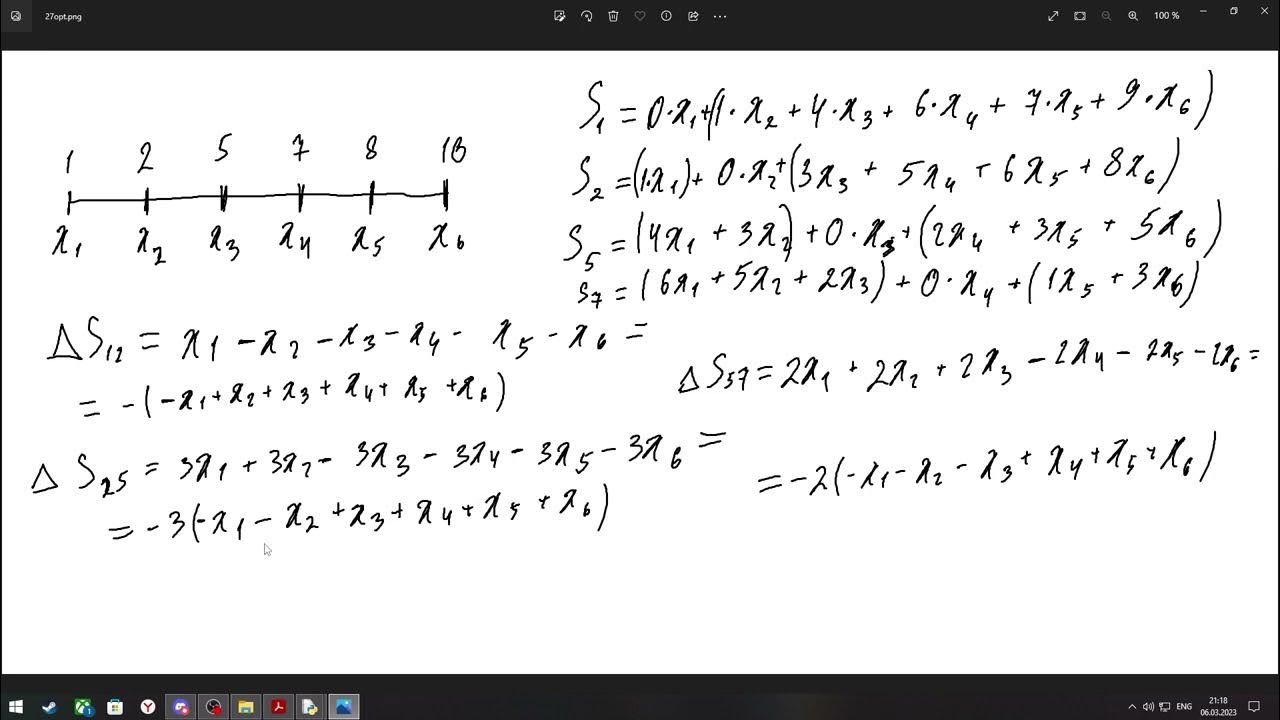 27opt.png
100 %
1 2 5 7 8 10
x₁ x₂ x₃ x₄ x₅ x₆
S₁ = 0·x₁+(1·x₂ + 4·x₃ + 6·x₄ + 7·x₅ + 9·x₆)
S₂ = (1·x₁) + 0·x₂+(3x₃ + 5x₄ + 6x₅ + 8x₆)
S₅ = (4x₁ + 3x₂) + 0·x₃+(2x₄ + 3x₅ + 5x₆)
S₇ = (6x₁ + 5x₂ + 2x₃) + 0·x₄ + (1x₅ + 3x₆)
ΔS₁₂ = x₁ - x₂ - x₃ - x₄ - x₅ - x₆ =
= -(-x₁ + x₂ + x₃ + x₄ + x₅ + x₆)
ΔS₂₅ = 3x₁ + 3x₂ - 3x₃ - 3x₄ - 3x₅ - 3x₆ =
= -3(-x₁ - x₂ + x₃ + x₄ + x₅ + x₆)
ΔS₅₇ = 2x₁ + 2x₂ + 2x₃ - 2x₄ - 2x₅ - 2x₆ =
= -2(-x₁ - x₂ - x₃ + x₄ + x₅ + x₆)
ENG
21:18
06.03.2023